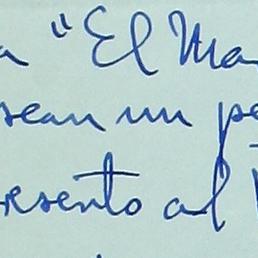 a "El Ma
sean un pe
resento al